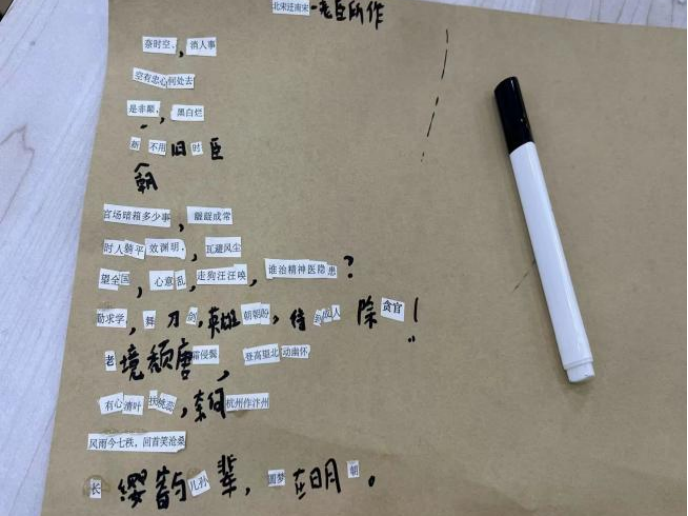 北宋迁南宋-老臣所作
奈时空，消人事
空有忠心何处去
是非颠，黑白烂
新朝不用旧时臣
官场暗箱多少事，龌龊成常
时人躺平效渊明，瓦遮风尘
望全国，心意乱，走狗汪汪唤，谁治精神医隐患？
勤求学，舞刀剑，英雄朝朝盼，待到仙人除贪官！
老境颓唐霜侵鬓，登高望北动幽怀
有心清叶，奈何杭州作汴州
风雨今七秩，回首笑沧桑
长缨待与儿孙辈，圆梦在明朝。